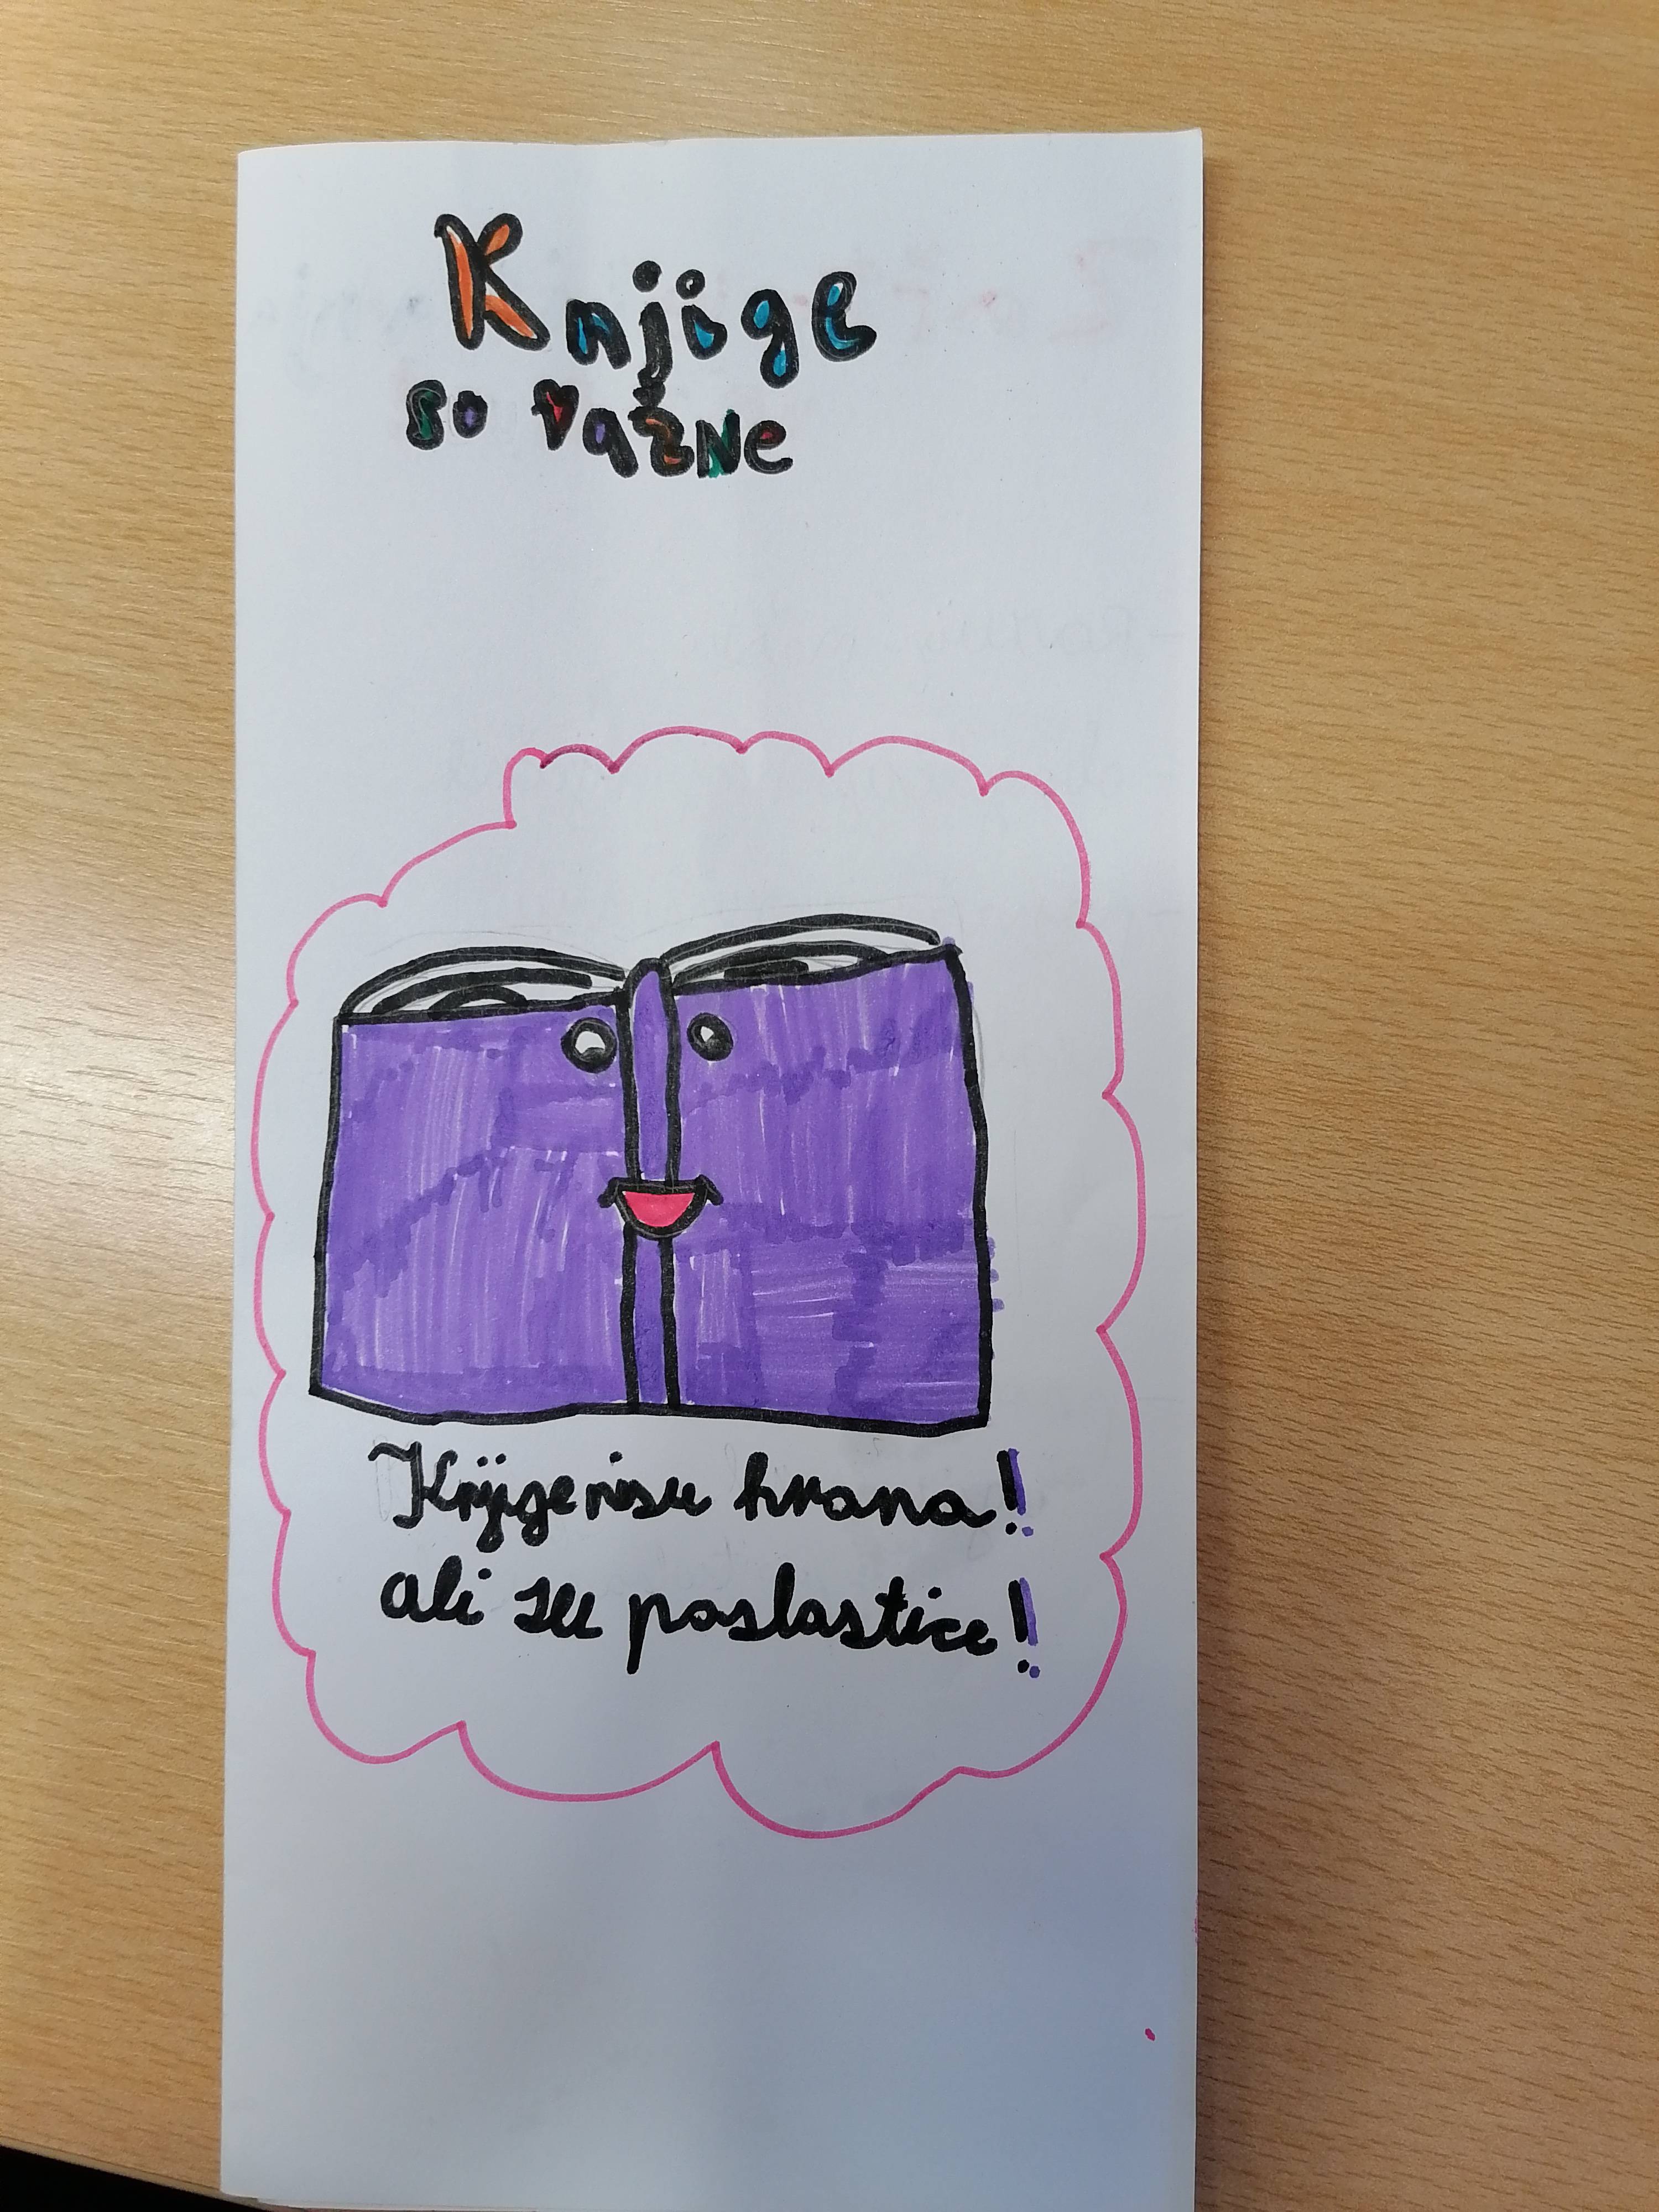 Knjige
so važne
Knjige nisu hrana!
ali su poslastice!